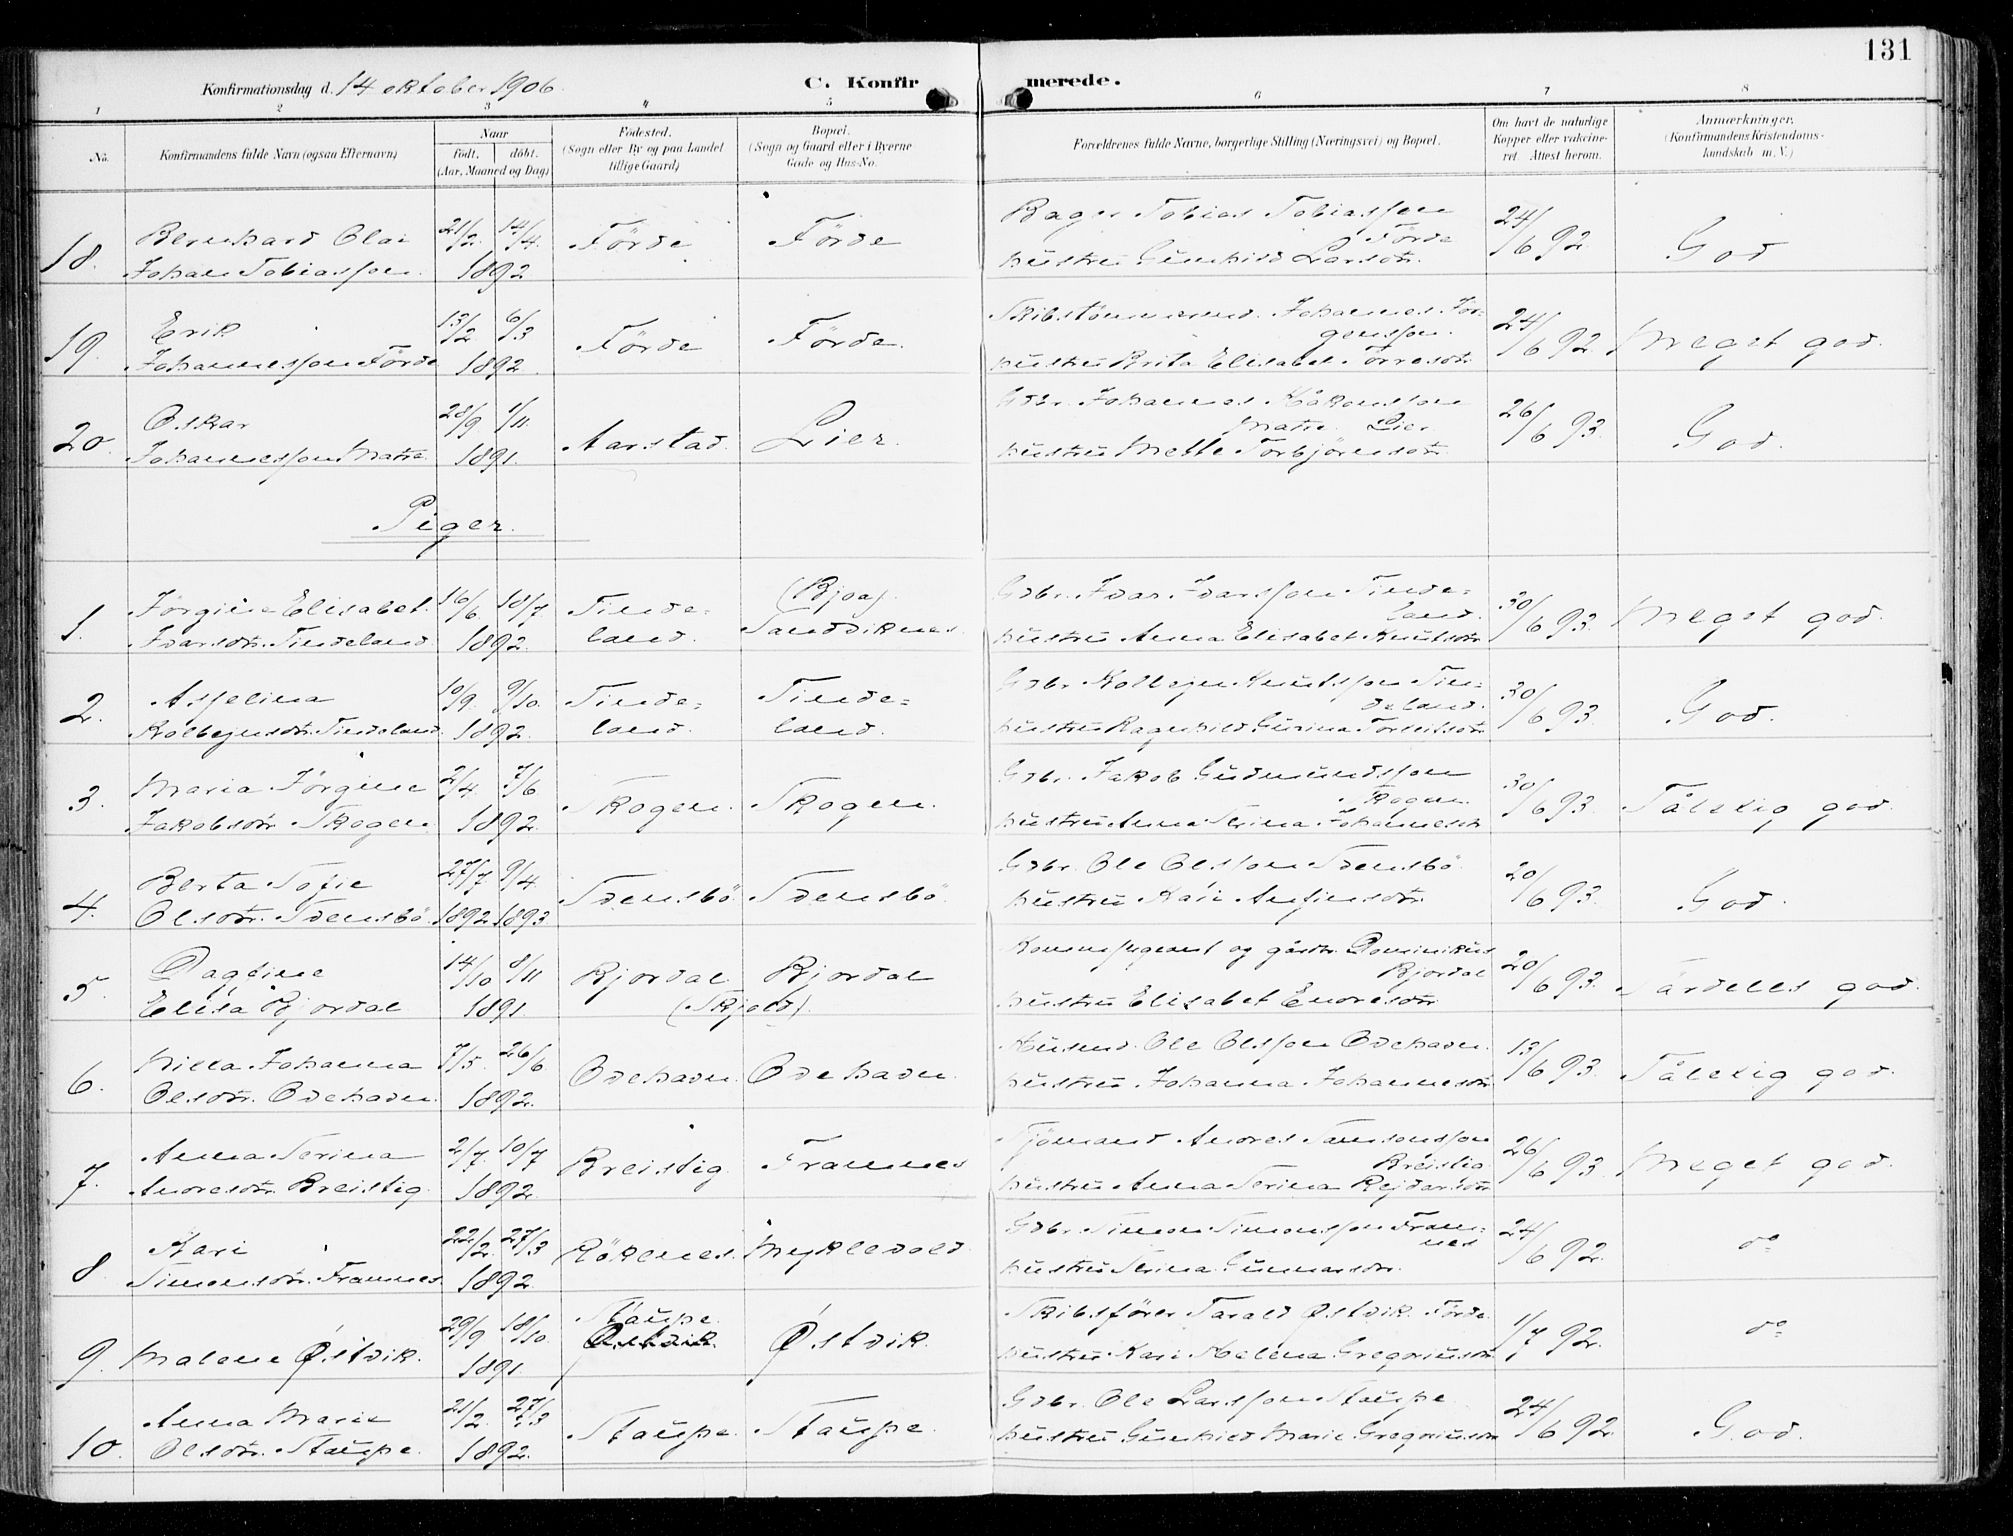 131
Konfirmationsdag d. 14 oktober 1906.
C. Konfirmerede.
1 2 3 4 5 6 7 8
No.
Konfirmandens fulde Navn (ogsaa Efternavn)
Naar
født. døbt.
(Aar, Maaned og Dag)
Fødested.
(Sogn eller By og paa Landet
tillige Gaard)
Bopæl.
(Sogn og Gaard eller i Byerne
Gade og Hus-No.
Forældrenes fulde Navne, borgerlige Stilling (Næringsvei) og Bopæl.
Om havt de naturlige
Kopper eller vakcine-
ret. Attest herom.
Anmærkninger.
(Konfirmandens Kristendoms-
kundskab m. V.)
18. Bernhard Olai 21/2. 14/4. Förde Förde Bager Tobias Tobiassen 24/6 92. God
Förde
Johan Tobiassen. 1892 hustru Gunhild Larsdtr.
19. Erik 13/2 6/3 Förde Förde. Skibstömmermd. Johannes Jör- 24/6 92. Meget god.
gensson.
Johannesson Förde 1892. hustru Brita Elisabet Torresdtr.
20. Oskar 28/9 1/11. Aarstad. Lier. Gdbr. Johannes Håkonsson 26/6 93. God.
Matre Lier
Johannesson Matre. 1891. hustru Mette Torbjörnsdtr.
Piger.
1. Jörgine Elisabet. 16/6 18/7 Tinde- (Bjoa). Gdbr. Ivar Ivarsson Tinde- 30/6 93. Meget god.
land.
Ivarsdtr. Tindeland. 1892. land. Sandviknes. hustru Anna Elisabet Knutsdtr.
2. Asselina 10/9. 9/10. Tinde- Tinde- Gdbr. Kolbejn Knutsson Tin- 30/6 93. God.
deland.
Kolbejnsdtr. Tindeland. 1892. land. land. hustru Ragnhild Gurina Torkilsdtr.
3. Maria Jörgine 2/4. 7/6 Skogen. Skogen. Gdbr. Jakob Gudmundsson 30/6 93. Tålelig god.
Skogen.
Jakobsdtr. Skogen. 1892. hustru Anna Serina Johannesdtr
4. Berta Sofie 27/7 9/4 Svensbö Svensbö. Gdbr. Ole Olsson Svensbö 20/6 93. God.
Olsdtr. Svensbö. 1892 1893. hustru Kari Anfinsdtr.
5. Dagfine 14/10 8/11 Bjordal Bjordal gårdbr. Dominikus 20/6 93. Særdeles god.
Bjordal
Elisa Bjordal. 1891. (Skjold). hustru Elisabet Endresdtr.
6. Milla Johanna 7/5. 26/6. Odehavn. Odehavn. Husmd. Ole Olsson Odehavn. 13/6 93. Tålelig god.
Olsdtr. Odehavn. 1892. hustru Johanna Johannesdtr
7. Anna Serina 2/7. 10/7 Breistig. Framnes Sjömand Andres Samsonsson 26/6 93. Meget god.
Breistig
Andresdtr. Breistig. 1892. hustru Anna Serina Rejdarsdtr
8. Kari 22/2. 27/3 Rökenes. Myklevold. Gdbr. Simon Simonsson Fram- 24/6 92. do
nes
Simonsdtr. Framnes. 1892. hustru Serina Gunnarsdtr.
9. Malene Østvik. 29/9 18/10. Staupe. Østvik. Skibsförer Tarald Østvik. Förde 1/7 92. do
Østvik.
1891. hustru Kari Malena Gregoriusdtr
10. Anna Marie 21/2. 27/3 Staupe. Staupe. Gdbr. Ole Larsson Staupe 24/6 92. God.
Olsdtr. Staupe. 1892. hustru Gunhild Marie Gregoriusdtr